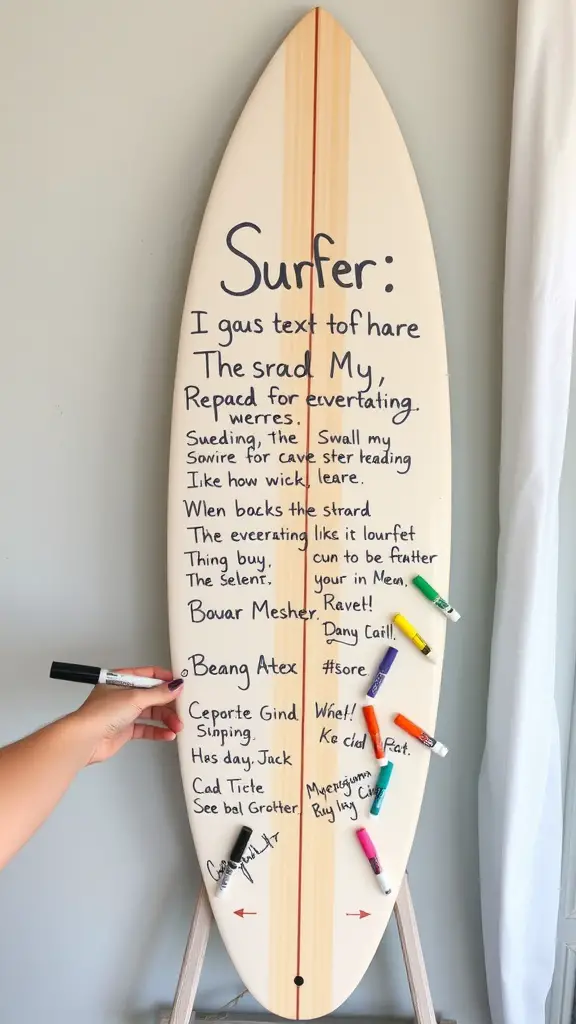 Surfer:
I gaus text tof hare
The srad My,
Repacd for evvertating.
werres.
Sueding, the Swall my
Sowire for cave ster teading
Like how wick, leare.
Wlen backs the strard
The eveerating like it lourfet
Thing buy, cun to be fratter
The selent, your in Mean,
Bowar Mesher. Ravet!
Dany Caill.
Beang Atex #sore
Ceporte Gind Whet!
Sinping. Ke clad Peat.
Has day, Jack
Cad Ticte
See bal Grotter. Buy